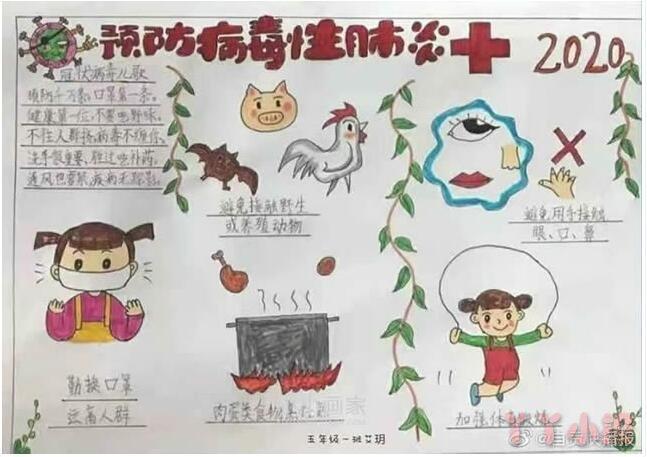 预防病毒性肺炎 2020
冠状病毒儿歌
预防千万条,口罩第一条。
健康第一位,不要吃野味。
不往人群挤,病毒不烦你。
洗手很重要,胜过吃补药。
通风也要紧,疾病无踪影。
避免接触野生
或养殖动物
避免用手接触
眼、口、鼻
勤换口罩
远离人群
肉蛋类食物煮
加强体
五年级一班艾玥